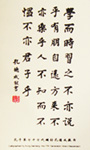 學而時習之不亦說
乎有朋自遠方來不
亦樂乎人不知而不
慍不亦君子乎